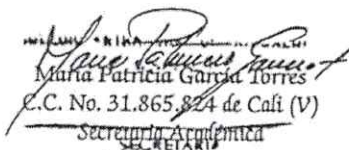 María Patricia García Torres
C.C. No. 31.865.824 de Cali (V)
Secretaria Académica
SECRETARIA